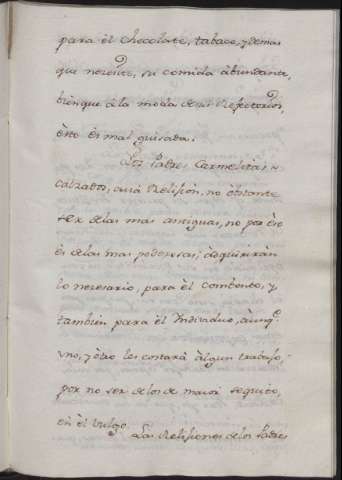 para èl chocolate, tabaco, y demas
que nesesite, su comida àbundante,
bienque àla moda desus Refectorios,
èsto ès mal guisada.
Los Padres Carmelitas
Calzados, cuia Relision, no òbstante
ser delas mas antiguas, no por èso
ès delas mas poderosas, àdquiriràn
lo necesario, para èl Combento, y
tambien para èl Yndividuo, àunq.ᵉ
uno, y òtro les costarà àlgun trabajo,
por no ser delos de maior sequito,
en èl Vulgo.
Las Relisiones delos Padres